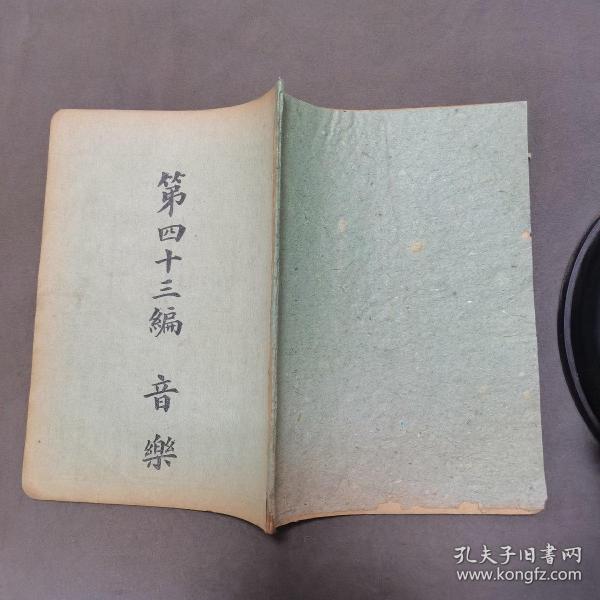 第四十三編 音樂
孔夫子旧书网
www.kongfz.com